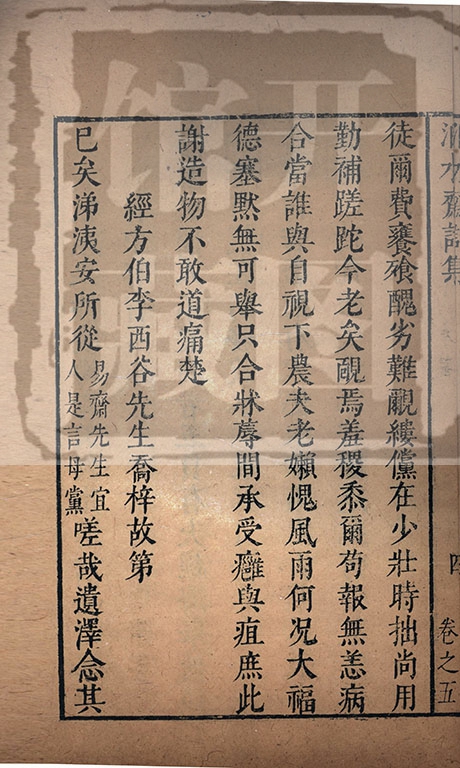 徒爾費饔飱醜劣難覼縷儻在少壯時拙尚用
勤補蹉跎今老矣靦焉羞稷黍爾苟報無恙病
合當誰與自視下農夫老嬾愧風雨何况大福
德塞黙無可舉只合牀蓐間承受癰與疽庶此
謝造物不敢道痛楚
經方伯李西谷先生喬梓故第
巳矣涕洟安所從易齋先生宜人是言母黨嗟哉遺澤念其
卷之五